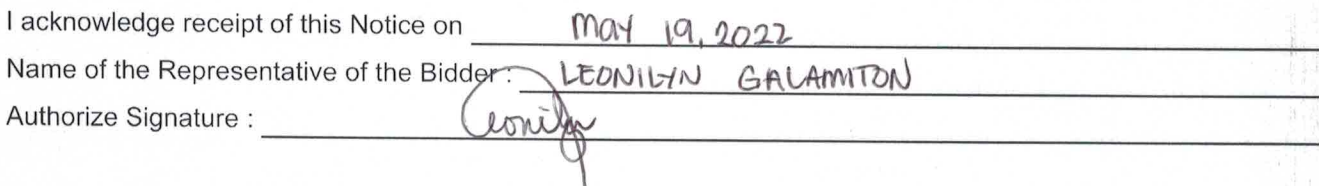 I acknowledge receipt of this Notice on May 19, 2022
Name of the Representative of the Bidder : LEONILYN GALAMITON
Authorize Signature : Leonilyn